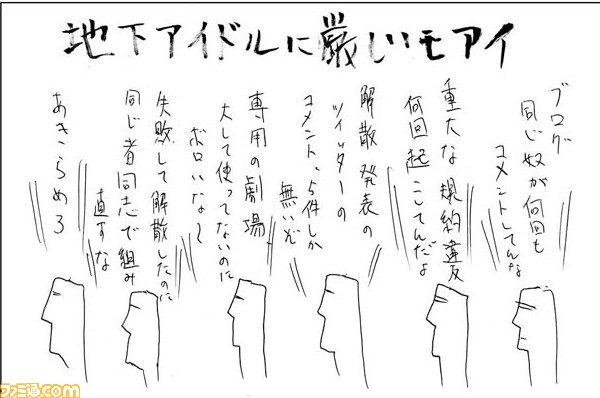 地下アイドルに厳しいモアイ
ブログ
同じ奴が何回も
コメントしてんな
重大な規約違反
何回起こしてんだよ
解散発表の
ツイッターの
コメント、5件しか
無いぞ
専用の劇場
大して使ってないのに
ボロいな〜
失敗して解散したのに
同じ者同志で組み
直すな
あきらめろ
ファミ通.com